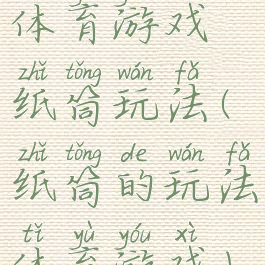 体育游戏
zhǐ tǒng wán fǎ
纸筒玩法(
zhǐ tǒng de wán fǎ
纸筒的玩法
tǐ yù yóu xì
体育游戏)